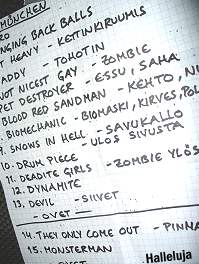 MÜNCHEN
RO
NGING BACK BALLS
T HEAVY - KETTINKIRUUMIS
ADDY - TOHOTIN
NOT NICEST GAY - ZOMBIE
PET DESTROYER - ESSU, SAHA
BLOOD RED SANDMAN - KEHTO, NI
BIOMECHANIC - BIOMASKI, KIRVES, POL
9. SNOWS IN HELL - SAVUKALLO
- ULOS SIVUSTA
10. DRUM PIECE
11. DEADITE GIRLS - ZOMBIE YLÖS
12. DYNAMITE
13. DEVIL - SIIVET
- OVET -
14. THEY ONLY COME OUT - PINNA
15. MONSTERMAN
OVET
Halleluja